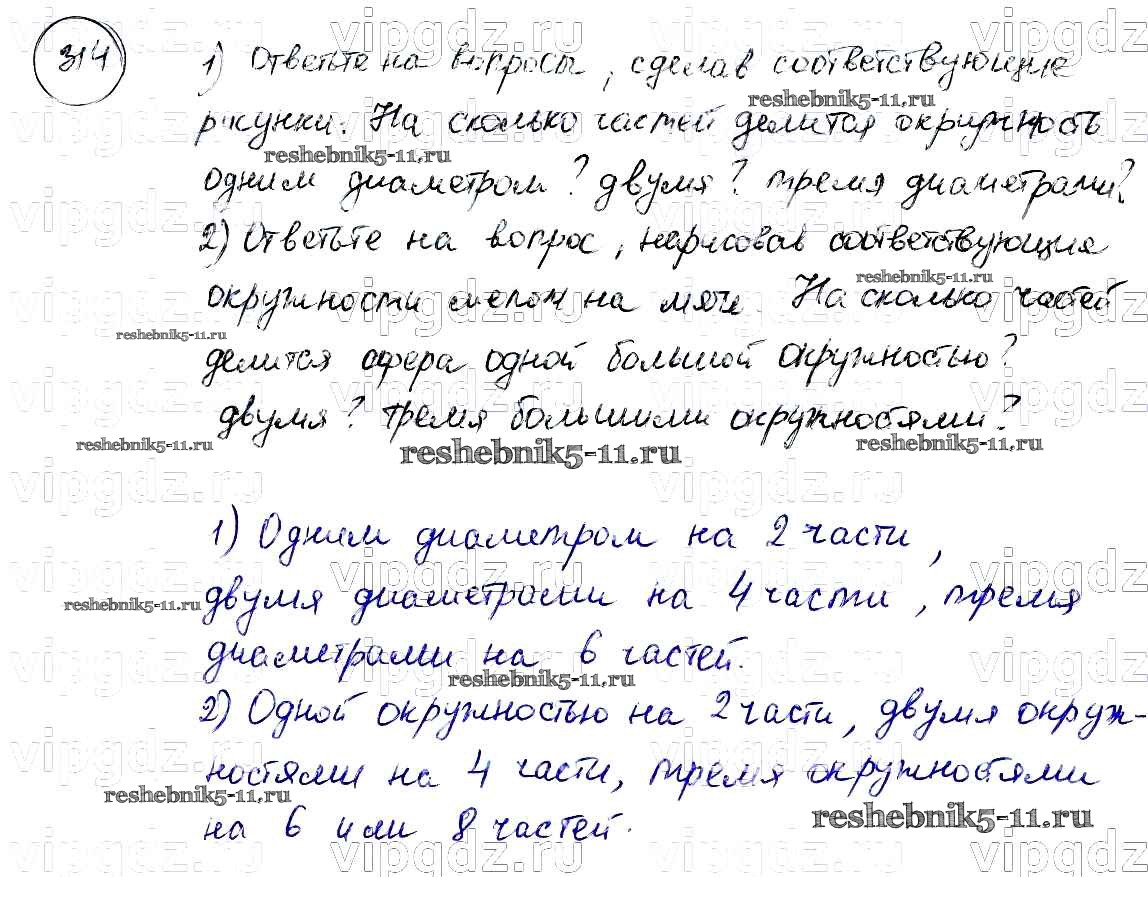 314
1) Ответьте на вопросы, сделав соответствующие
рисунки. На сколько частей делится окружность
одним диаметром? двумя? тремя диаметрами?
2) Ответьте на вопрос, нарисовав соответствующие
окружности мелом на мяче. На сколько частей
делится сфера одной большой окружностью?
двумя? тремя большими окружностями?
1) Одним диаметром на 2 части,
двумя диаметрами на 4 части, тремя
диаметрами на 6 частей.
2) Одной окружностью на 2 части, двумя окруж-
ностями на 4 части, тремя окружностями
на 6 или 8 частей.
vipgdz.ru
reshebnik5-11.ru